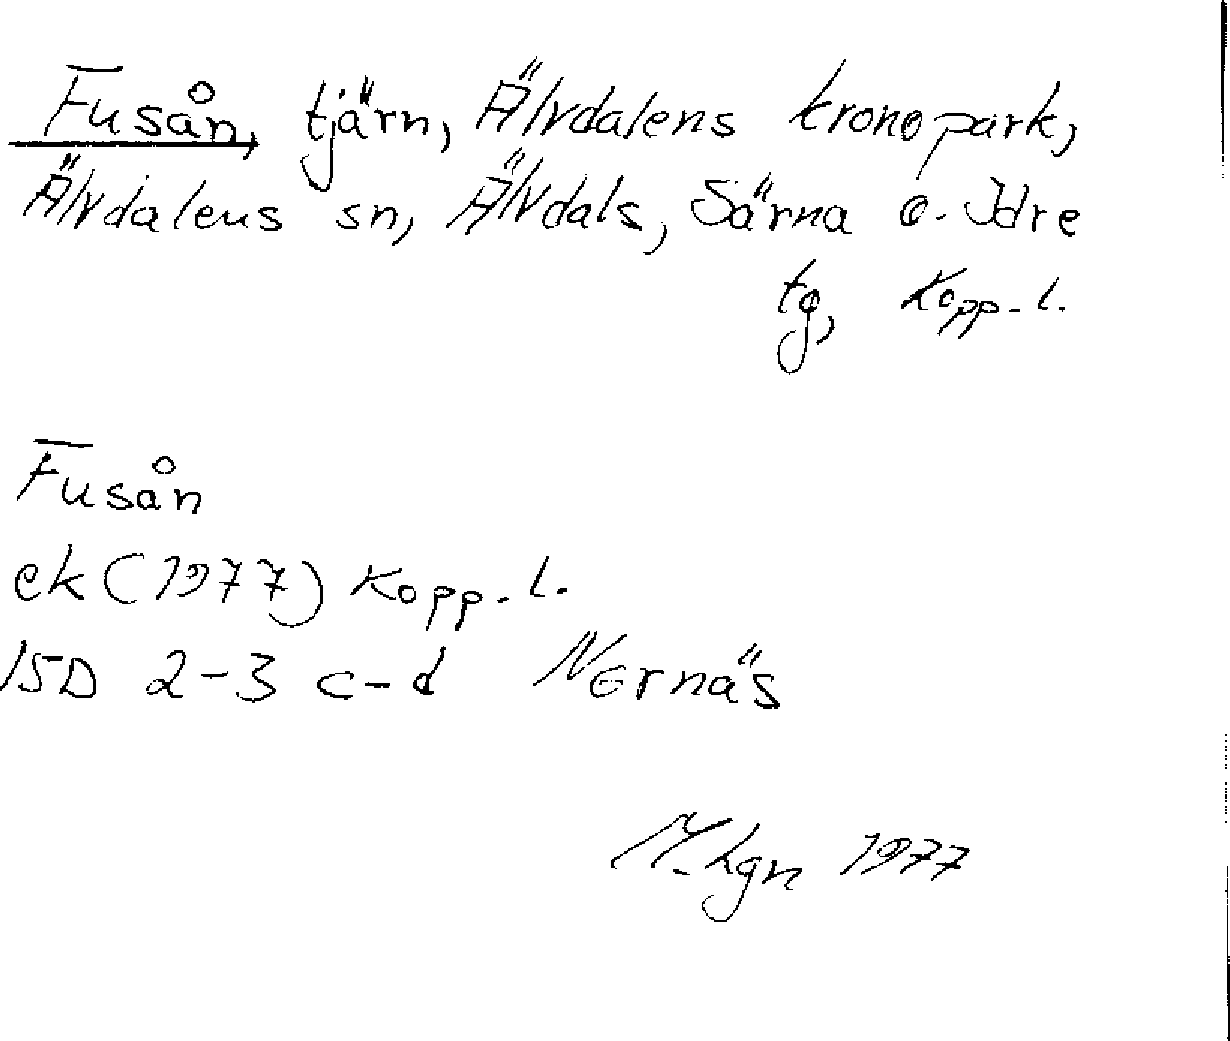 Fusån, tjärn, Älvdalens kronopark,
Älvdalens sn, Älvdals, Särna o. Idre
tg, Kopp. l.
Fusån
ek (1977) Kopp. l.
15D 2-3 c-d Nornäs
M. Lgn 1977